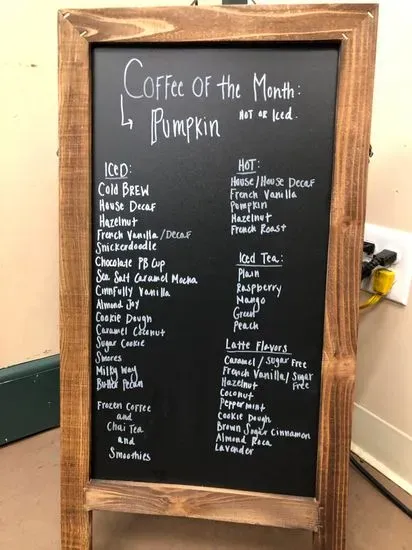 Coffee of the Month:
Pumpkin Hot or Iced.
Iced:
Cold Brew
House Decaf
Hazelnut
French Vanilla/Decaf
Snickerdoodle
Chocolate PB Cup
Sea Salt Caramel Mocha
Cinnfully Vanilla
Almond Joy
Cookie Dough
Caramel Coconut
Sugar Cookie
Smores
Milky Way
Butter Pecan
Frozen Coffee
and
Chai Tea
and
Smoothies
Hot:
House/House Decaf
French Vanilla
Pumpkin
Hazelnut
French Roast
Iced Tea:
Plain
Raspberry
Mango
Green
Peach
Latte Flavors
Caramel/Sugar Free
French Vanilla/Sugar Free
Hazelnut
Coconut
Peppermint
Cookie Dough
Brown Sugar Cinnamon
Almond Roca
Lavender